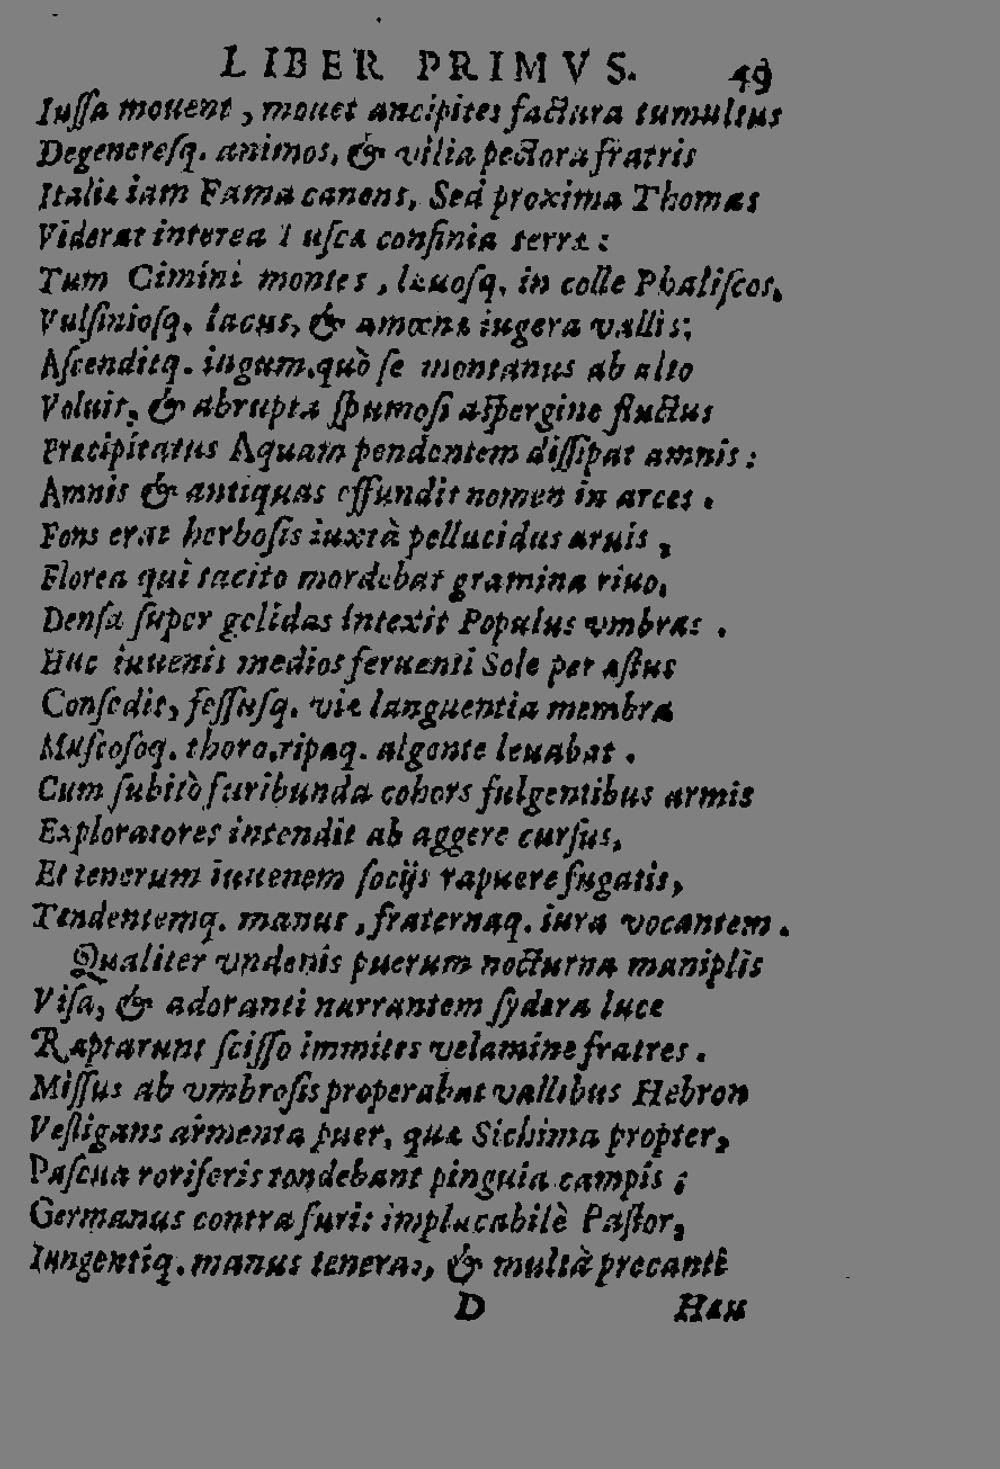 LIBER PRIMVS. 49
Iuſſa mouent, mouet ancipites factura tumultus
Degenereſq. animos, & vilia pectora fratris
Italiæ iam Fama canens, Sed proxima Thomas
Viderat interea Tuſca confinia terræ:
Tum Cimini montes, læuoſq. in colle Phaliſcos,
Vulſinioſq. lacus, & amœna iugera vallis;
Aſcenditq. iugum, quò ſe montanus ab alto
Voluit, & abrupta ſpumoſi aſpergine fluctus
Præcipitatus Aquam pendentem diſſipat amnis:
Amnis & antiquas effundit nomen in arces.
Fons erat herboſis iuxtà pellucidus aruis,
Florea qui tacito mordebat gramina riuo,
Denſa ſuper gelidas intexit Populus vmbras.
Huc iuuenis medios feruenti Sole per æſtus
Conſedit, feſſuſq. viæ languentia membra
Muſcoſoq. thoro, ripaq. algente leuabat.
Cum ſubitò furibunda cohors fulgentibus armis
Exploratores intendit ab aggere curſus,
Et tenerum iuuenem ſocijs rapuere fugatis,
Tendentemq. manus, fraternaq. iura vocantem.
Qualiter vndenis puerum nocturna maniplis
Viſa, & adoranti narrantem ſydera luce
Raptarunt ſciſſo immites velamine fratres.
Miſſus ab vmbroſis properabat vallibus Hebron
Veſtigans armenta puer, quæ Sichima propter,
Paſcua roriferis tondebant pinguia campis;
Germanus contra furit implacabilè Paſtor,
Iungentiq. manus teneras, & multà precantē
D Hau